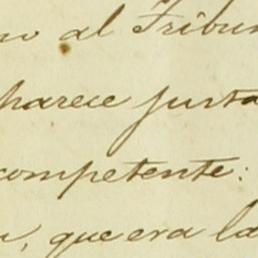 no al Tribun
parece justa
competente:
a, que era la